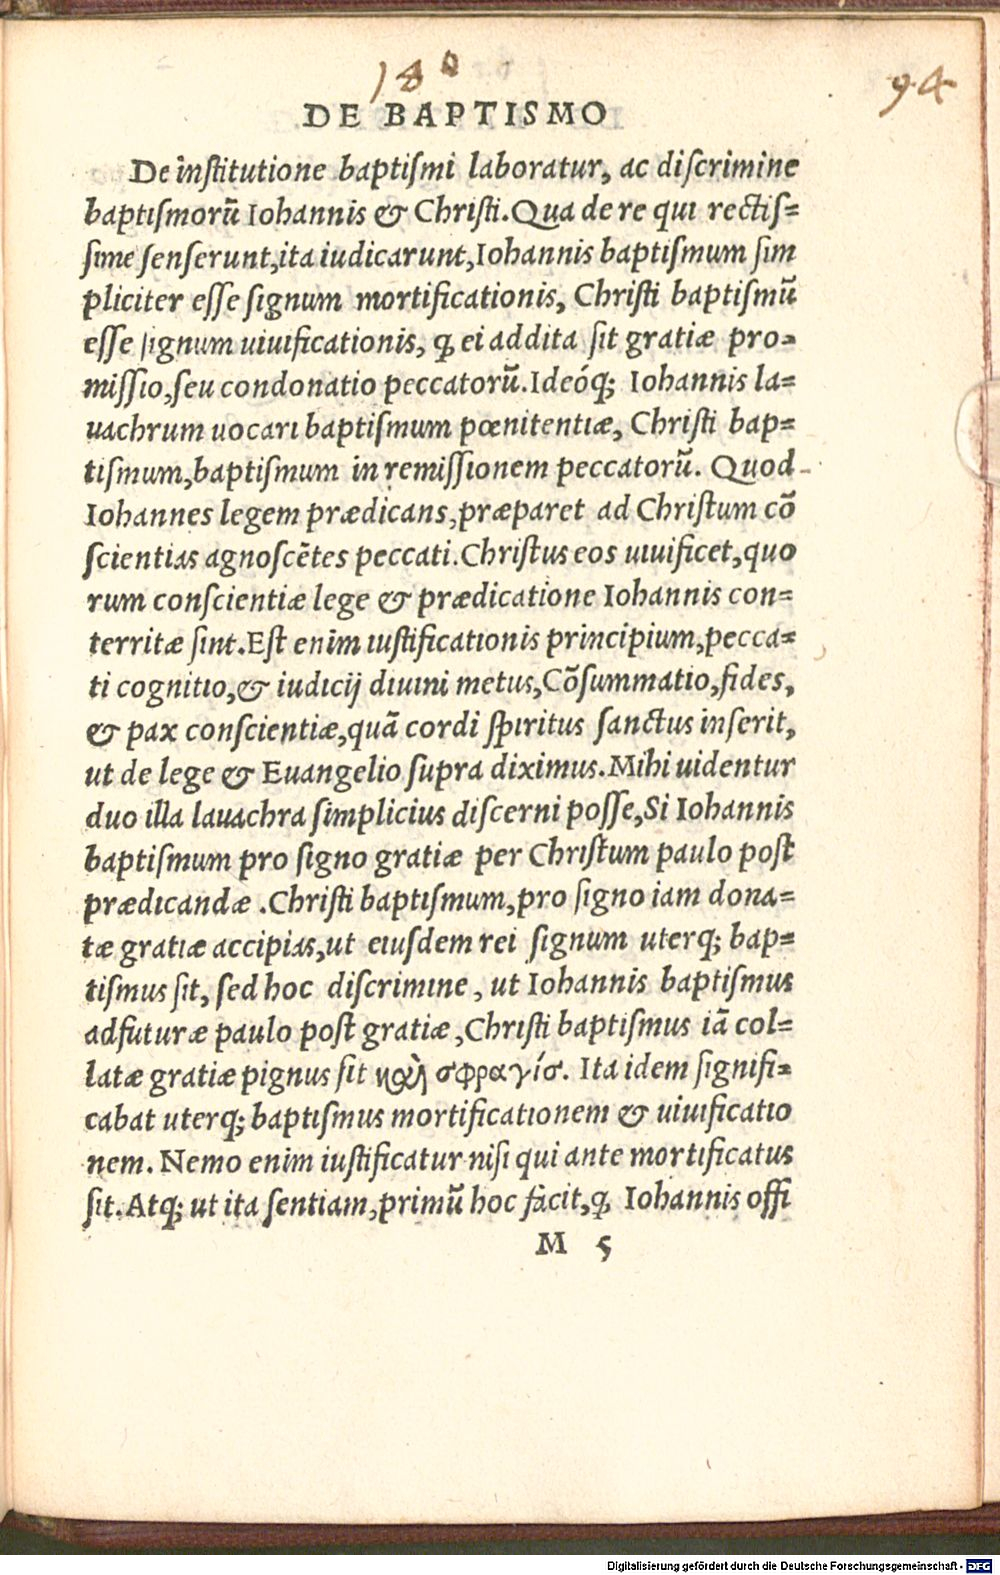 94
DE BAPTISMO
De institutione baptiſmi laboratur, ac diſcrimine
baptiſmorũ Iohannis & Chriſti. Qua de re qui rectiſ=
ſime ſenſerunt, ita iudicarunt, Iohannis baptiſmum ſim
pliciter eſſe ſignum mortificationis, Chriſti baptiſmũ
eſſe ſignum uiuificationis, ꝙ ei addita ſit gratiæ pro=
miſſio, ſeu condonatio peccatorũ. Ideóq; Iohannis la=
uachrum uocari baptiſmum pœnitentiæ, Chriſti bap=
tiſmum, baptiſmum in remiſſionem peccatorũ. Quod
Iohannes legem prædicans, præparet ad Chriſtum cõ
ſcientias agnoſcẽtes peccati. Chriſtus eos uiuificet, quo
rum conſcientiæ lege & prædicatione Iohannis con=
territæ ſint. Eſt enim iuſtificationis principium, pecca=
ti cognitio, & iudicij diuini metus, Cõſummatio, fides,
& pax conſcientiæ, quã cordi ſpiritus ſanctus inſerit,
ut de lege & Euangelio ſupra diximus. Mihi uidentur
duo illa lauachra ſimplicius diſcerni poſſe, Si Iohannis
baptiſmum pro ſigno gratiæ per Chriſtum paulo poſt
prædicandæ. Chriſti baptiſmum, pro ſigno iam dona=
tæ gratiæ accipias, ut eiuſdem rei ſignum uterq; bap=
tiſmus ſit, ſed hoc diſcrimine, ut Iohannis baptiſmus
adfuturæ paulo poſt gratiæ, Chriſti baptiſmus iã col=
latæ gratiæ pignus ſit καὶ σφραγίσ. Ita idem ſignifi=
cabat uterq; baptiſmus mortificationem & uiuificatio
nem. Nemo enim iuſtificatur niſi qui ante mortificatus
ſit. Atq; ut ita ſentiam, primũ hoc facit, ꝙ Iohannis offi
M 5
Digitalisierung gefördert durch die Deutsche Forschungsgemeinschaft - DFG